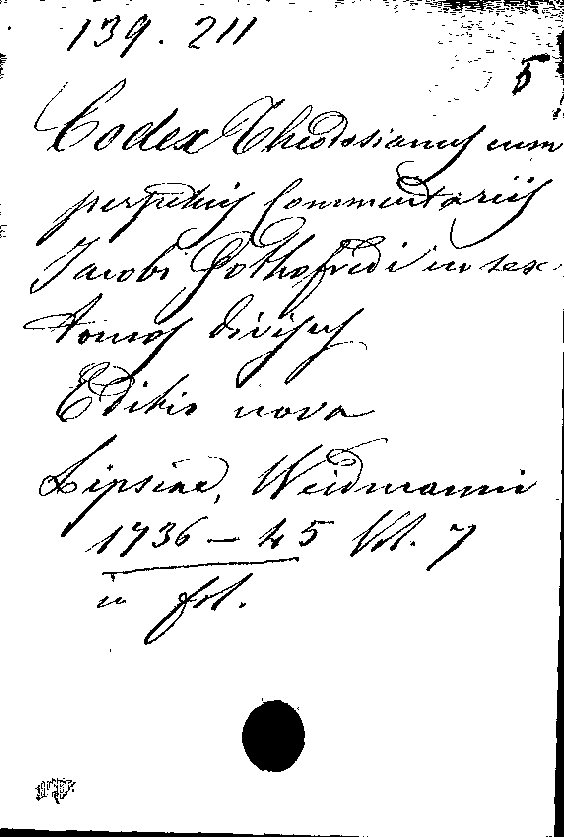 139.211
5
Codex Theodosianus cum
perpetuis Commentariis
Jacobi Gothofredi in sex
tomos divisus
Editio nova
Lipsiae, Weidmanni
1736-45 Vol. 7
in fol.